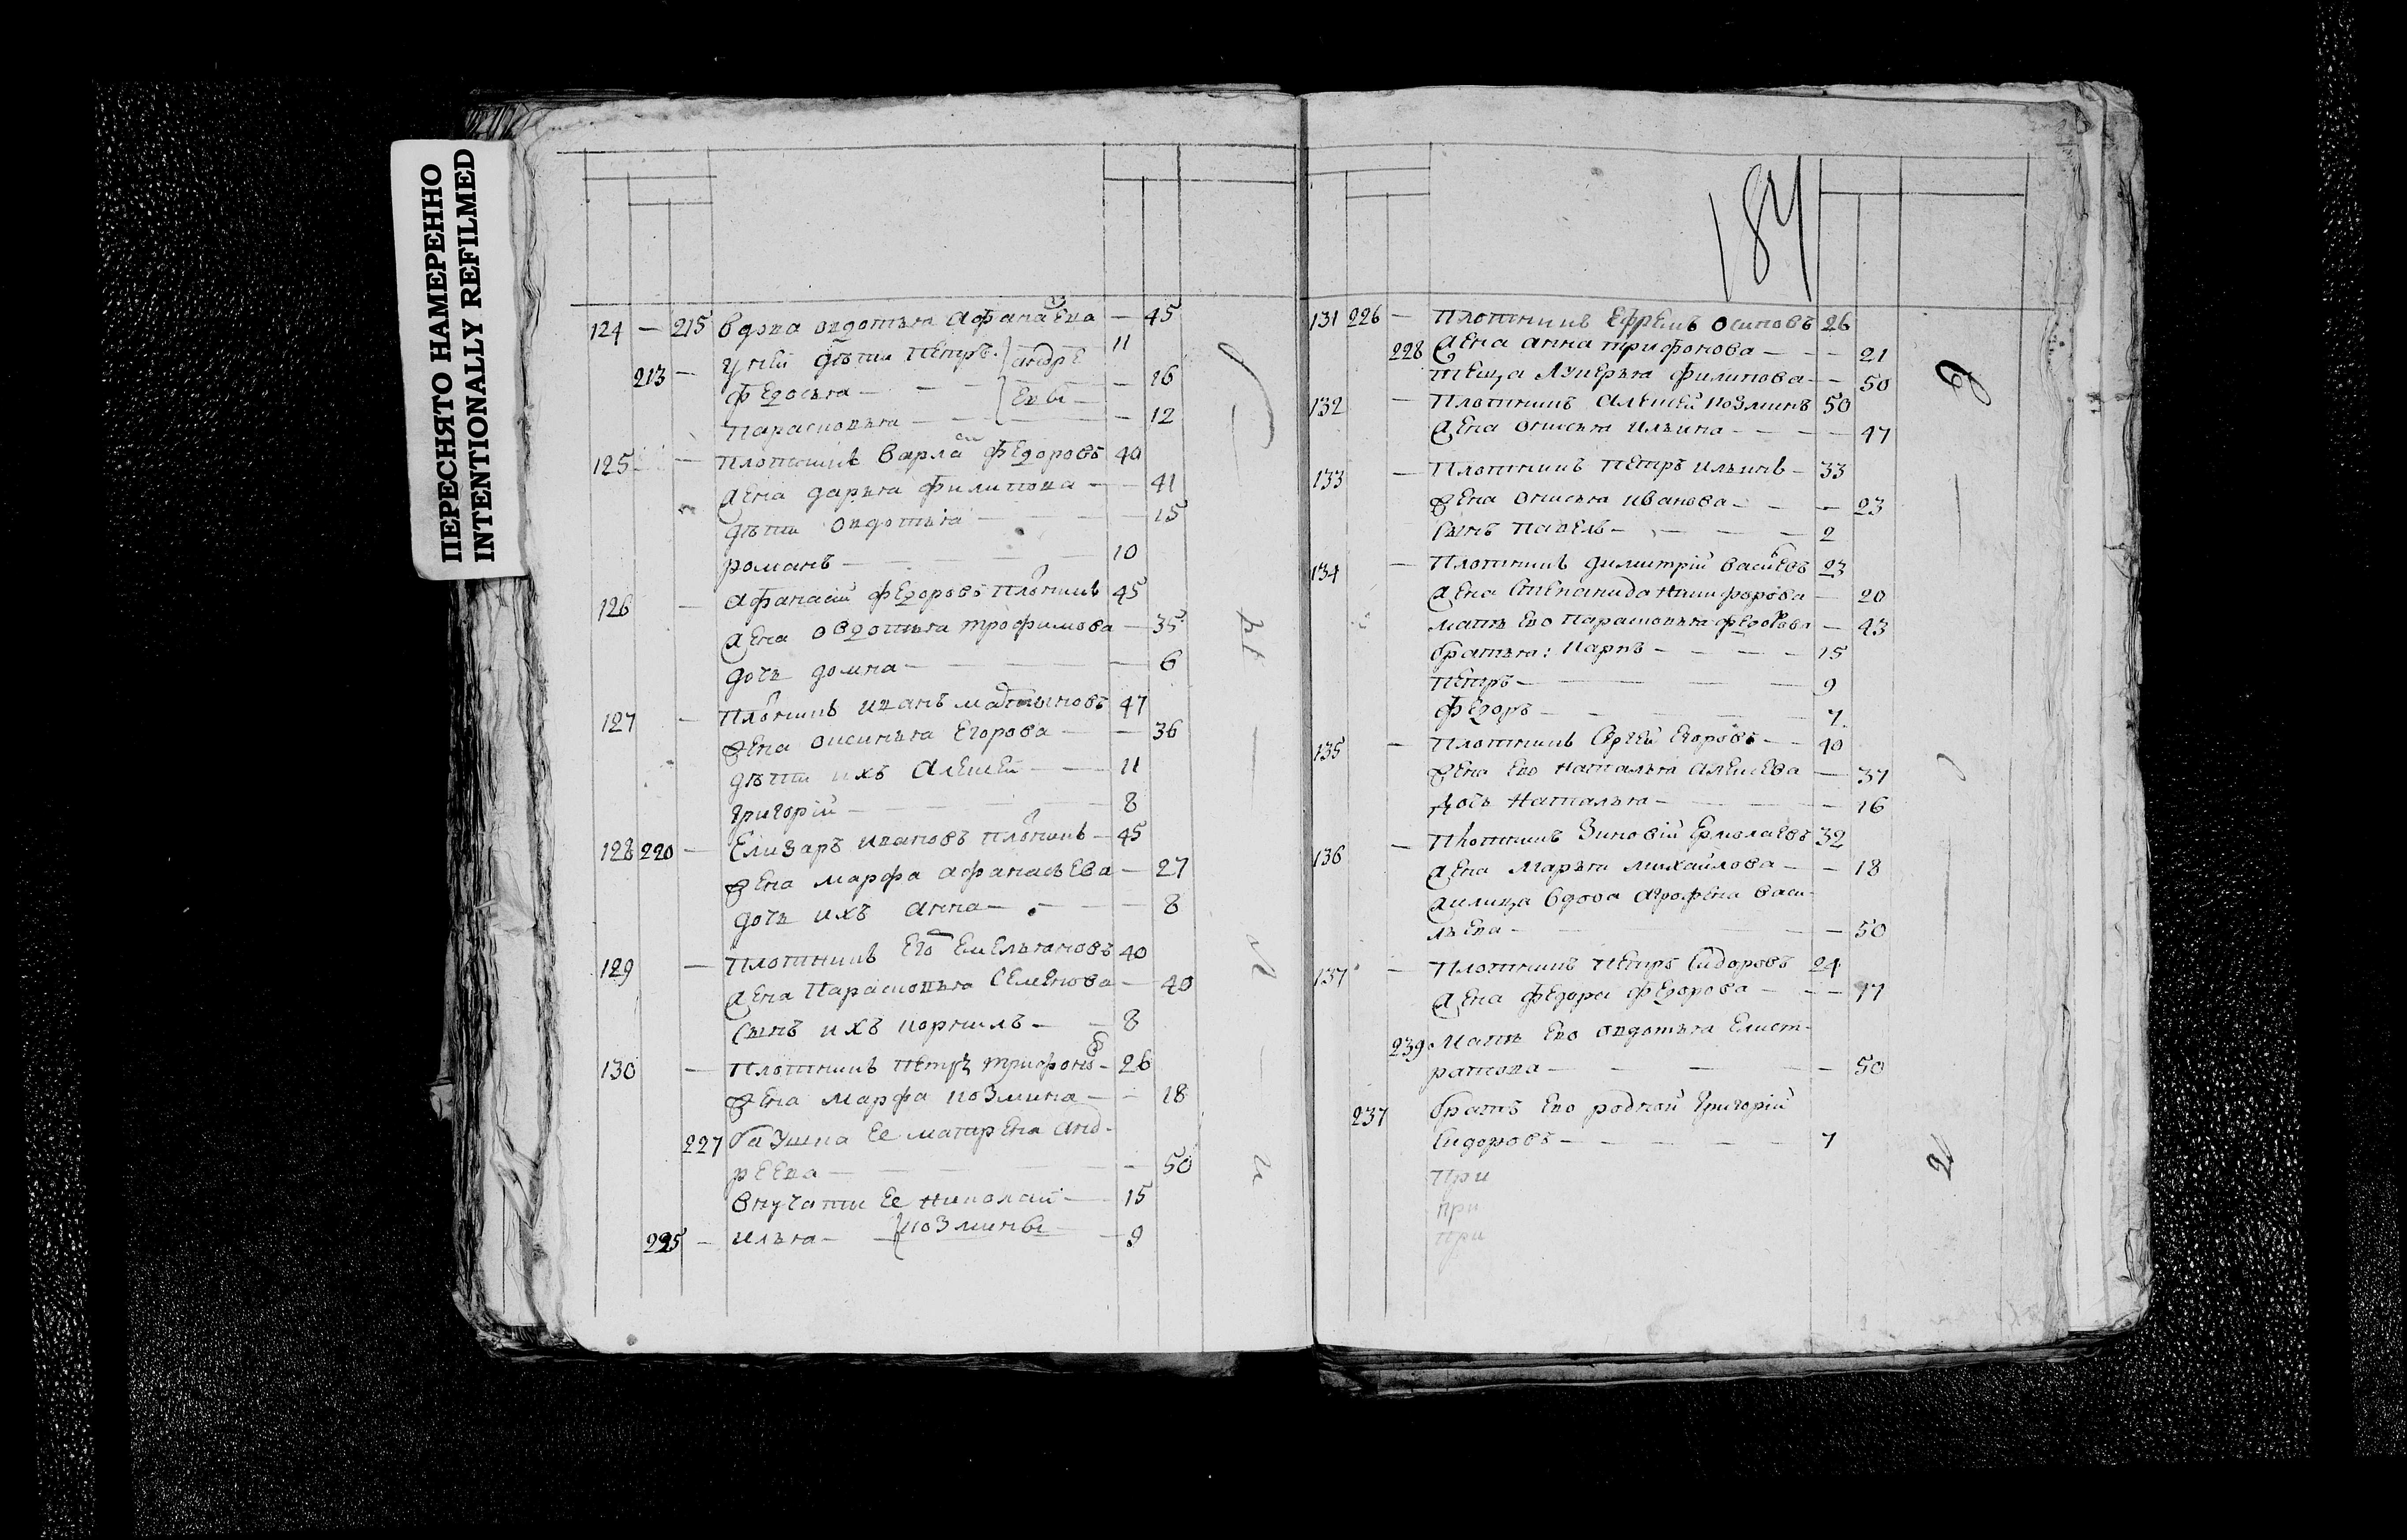 ПЕРЕСНЯТО НАМЕРЕННО
INTENTIONALLY REFILMED
124 — 215 вдова овдотья Афанасьева — 45
у ней дѣти Петръ андре 11
213 — Федосья — — евы — 16
Парасковья — — — 12
125 — Плотникъ Варлам Федоровъ 40
жена дарья филипова — — 41
дѣти овдотья — — 15
романъ — — 10
126 — Афанасий Федоровъ плотникъ 45
жена овдотья трофимова — 35
дочь домна — — 6
127 — плотникъ иванъ мартыновъ 47
жена оксинья Егорова — — 36
дѣти ихъ Алексей — — 11
Григорий — — 8
128 220 — Елизаръ ивановъ плотникъ — 45
жена марфа афанасьева — 27
дочь ихъ анна — — 8
129 — Плотникъ Егоръ Емельяновъ 40
жена Парасковья Семенова — 40
Сынъ ихъ корнилъ — — 8
130 — Плотникъ петръ трифоновъ — 26
жена марфа козмина — — 18
227 бабушка Ее матрена анд-
реева — — 50
внучаты Ее николай — 15
225 — илья — козмины — 9
184
131 226 — Плотникъ Ефремъ Осиповъ 26
228 жена анна трифонова — — — 21
теща Лукерья филипова — — 50
132 — Плотникъ Алексей козминъ 50
жена оксинья ильина — — — 47
133 — Плотникъ петръ ильинъ — 33
жена оксинья иванова — — — 23
Сынъ павелъ — — — 2
134 — Плотникъ димитрий василевъ 23
жена Степанида никифорова — 20
мать ево парасковья федорова — 43
братья: карпъ — — — 15
петръ — — — 9
федоръ — — — 7
135 — Плотникъ Сергей Егоровъ — — 40
жена ево наталья алексева — 37
дочь наталья — — — 16
136 — Плотникъ Зиновий Ермолаевъ 32
жена Марья михайлова — — 18
вдова Аграфена васи-
льева — — 50
137 — Плотникъ петръ Сидоровъ 24
жена федора федорова — — — 17
239 Мать ево овдотья Елист-
ратова — — — 50
237 братъ ево родной Григорий
Сидоровъ — — — 7
При
при
при